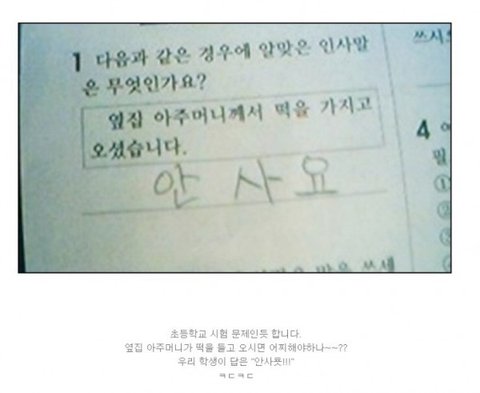 1 다음과 같은 경우에 알맞은 인사말
은 무엇인가요?
옆집 아주머니께서 떡을 가지고
오셨습니다.
안 사요
쓰시오
4
필
①
②
③
④
초등학교 시험 문제인듯 합니다.
옆집 아주머니가 떡을 들고 오시면 어찌해야하나~~??
우리 학생이 답은 "안사욧!!!"
ㅋㄷㅋㄷ